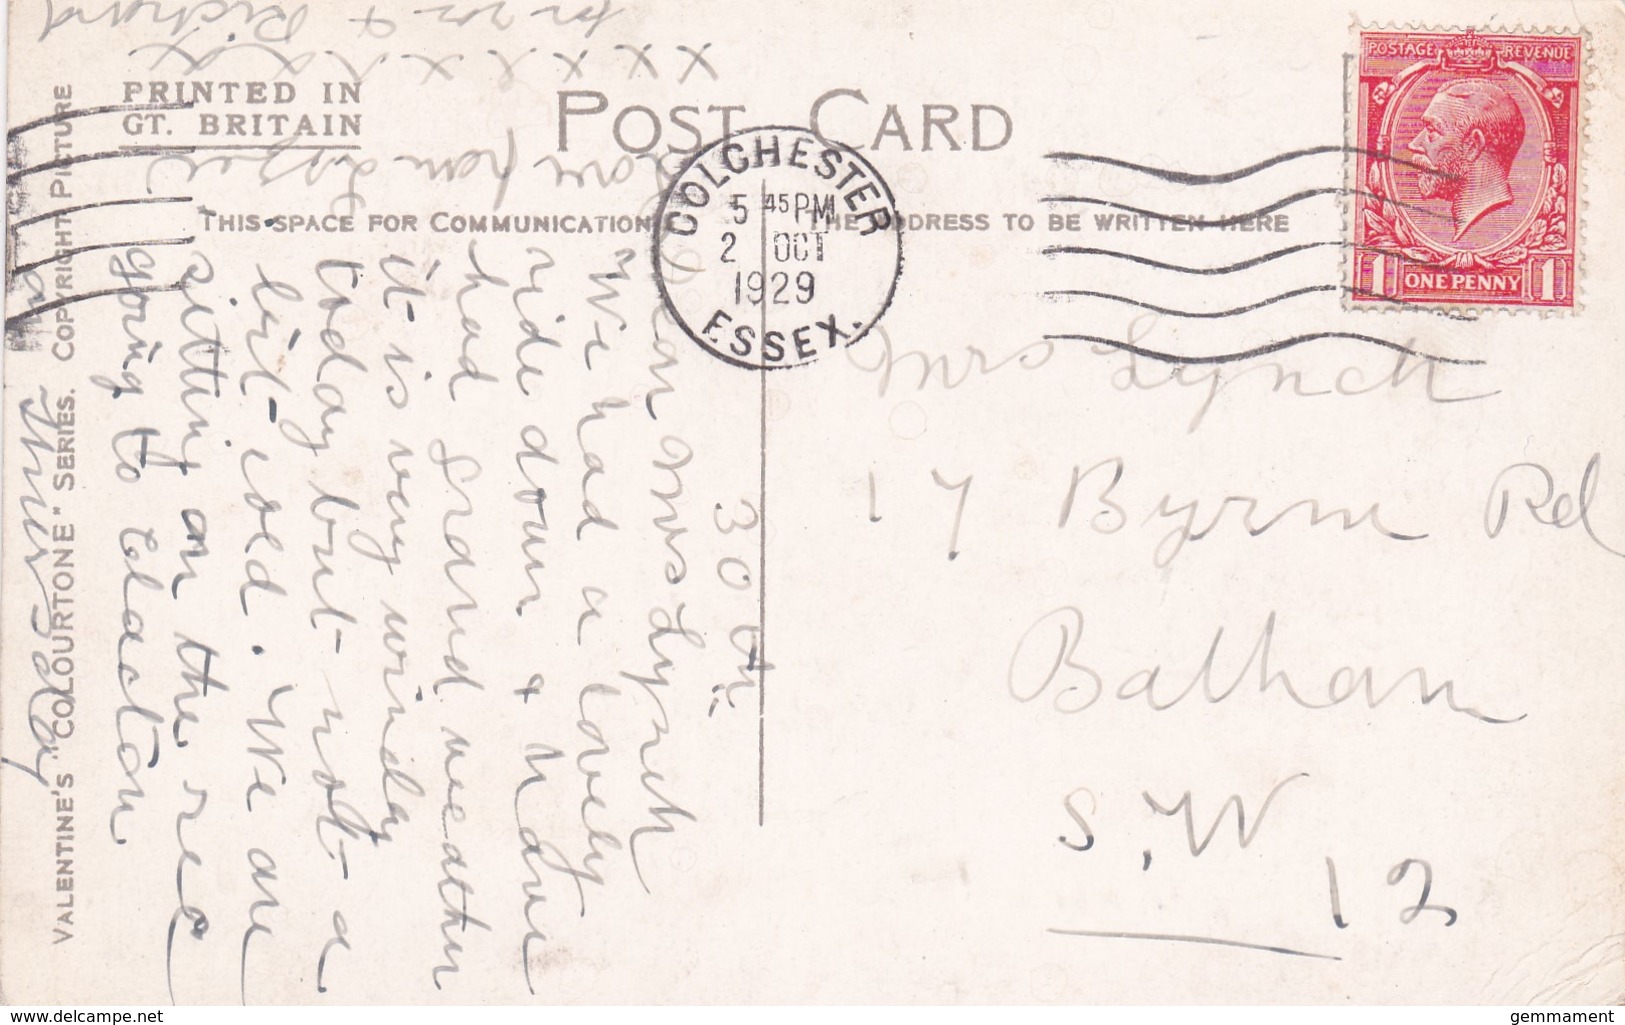 PRINTED IN
GT. BRITAIN
POST CARD
THIS SPACE FOR COMMUNICATION
THE ADDRESS TO BE WRITTEN HERE
VALENTINE'S "COLOURTONE" SERIES. COPYRIGHT PICTURE
COLCHESTER
5 45 PM
2 OCT
1929
ESSEX.
POSTAGE REVENUE
1 ONE PENNY 1
30th
Dear Mrs Lynch
We had a lovely
ride down & have
had grand weather
it is very windy
today but not a
bit cold. We are
sitting on the sea
going to Clacton
on Thursday
Love from
x x x x x x x x
for & Richard
Mrs Lynch
17 Byrne Rd
Balham
S.W
12
www.delcampe.net
gemmament